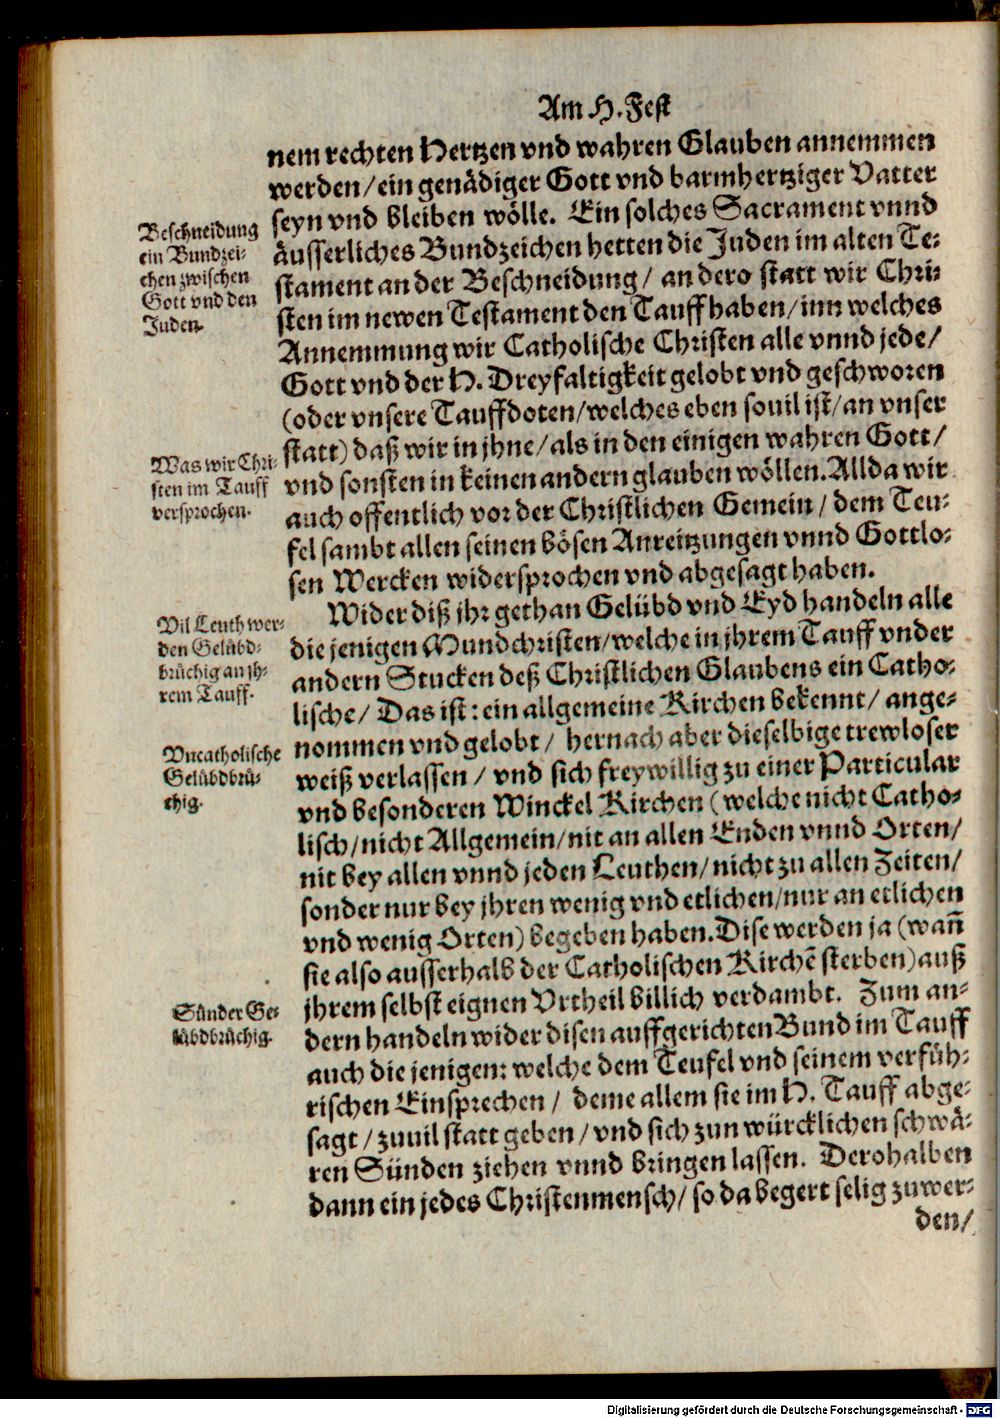 Am H. Fest
nem rechten Hertzen vnd wahren Glauben annemmen
werden/ ein genädiger Gott vnd barmhertziger Vatter
seyn vnd bleiben wölle. Ein solches Sacrament vnnd
äusserliches Bundzeichen hetten die Juden im alten Te-
stament an der Beschneidung/ an dero statt wir Chri-
sten im newen Testament den Tauff haben/ inn welches
Annemmung wir Catholische Christen alle vnnd jede/
Gott vnd der H. Dreyfaltigkeit gelobt vnd geschworen
(oder vnsere Tauffdoten/ welches eben souil ist/ an vnser
statt) daß wir in jhne/ als in den einigen wahren Gott/
vnd sonsten in keinen andern glauben wöllen. Allda wir
auch offentlich vor der Christlichen Gemein/ dem Teu-
fel sambt allen seinen bösen Anreitzungen vnnd Gottlo-
sen Wercken widersprochen vnd abgesagt haben.
Wider diß jhr gethan Gelübd vnd Eyd handeln alle
die jenigen Mundchristen/ welche in jhrem Tauff vnder
andern Stucken deß Christlichen Glaubens ein Catho-
lische/ Das ist: ein allgemeine Kirchen bekennt/ ange-
nommen vnd gelobt/ hernach aber dieselbige trewloser
weiß verlassen/ vnd sich freywillig zu einer Particular
vnd besonderen Winckel Kirchen (welche nicht Catho-
lisch/ nicht Allgemein/ nit an allen Enden vnnd Orten/
nit bey allen vnnd jeden Leuthen/ nicht zu allen Zeiten/
sonder nur bey jhren wenig vnd etlichen/ nur an etlichen
vnd wenig Orten) begeben haben. Dise werden ja (wañ
sie also ausserhalb der Catholischen Kirchẽ sterben) auß
jhrem selbst eignen Vrtheil billich verdambt. Zum an-
dern handeln wider disen auffgerichten Bund im Tauff
auch die jenigen: welche dem Teufel vnd seinem verfüh-
rischen Einsprechen/ deme allem sie im H. Tauff abge-
sagt/ zuuil statt geben/ vnd sich zun würcklichen schwä-
ren Sünden ziehen vnnd bringen lassen. Derohalben
dann ein jedes Christenmensch/ so da begert selig zuwer-
den/
Beschneidung
ein Bundzei-
chen zwischen
Gott vnd den
Juden.
Was wir Chri-
sten im Tauff
versprochen.
Vil Leuth wer-
den Gelübd-
brüchig an jh-
rem Tauff.
Vncatholische
Gelübdbrü-
chig.
Sünder Ge-
lübdbrüchig.
Digitalisierung gefördert durch die Deutsche Forschungsgemeinschaft - DFG